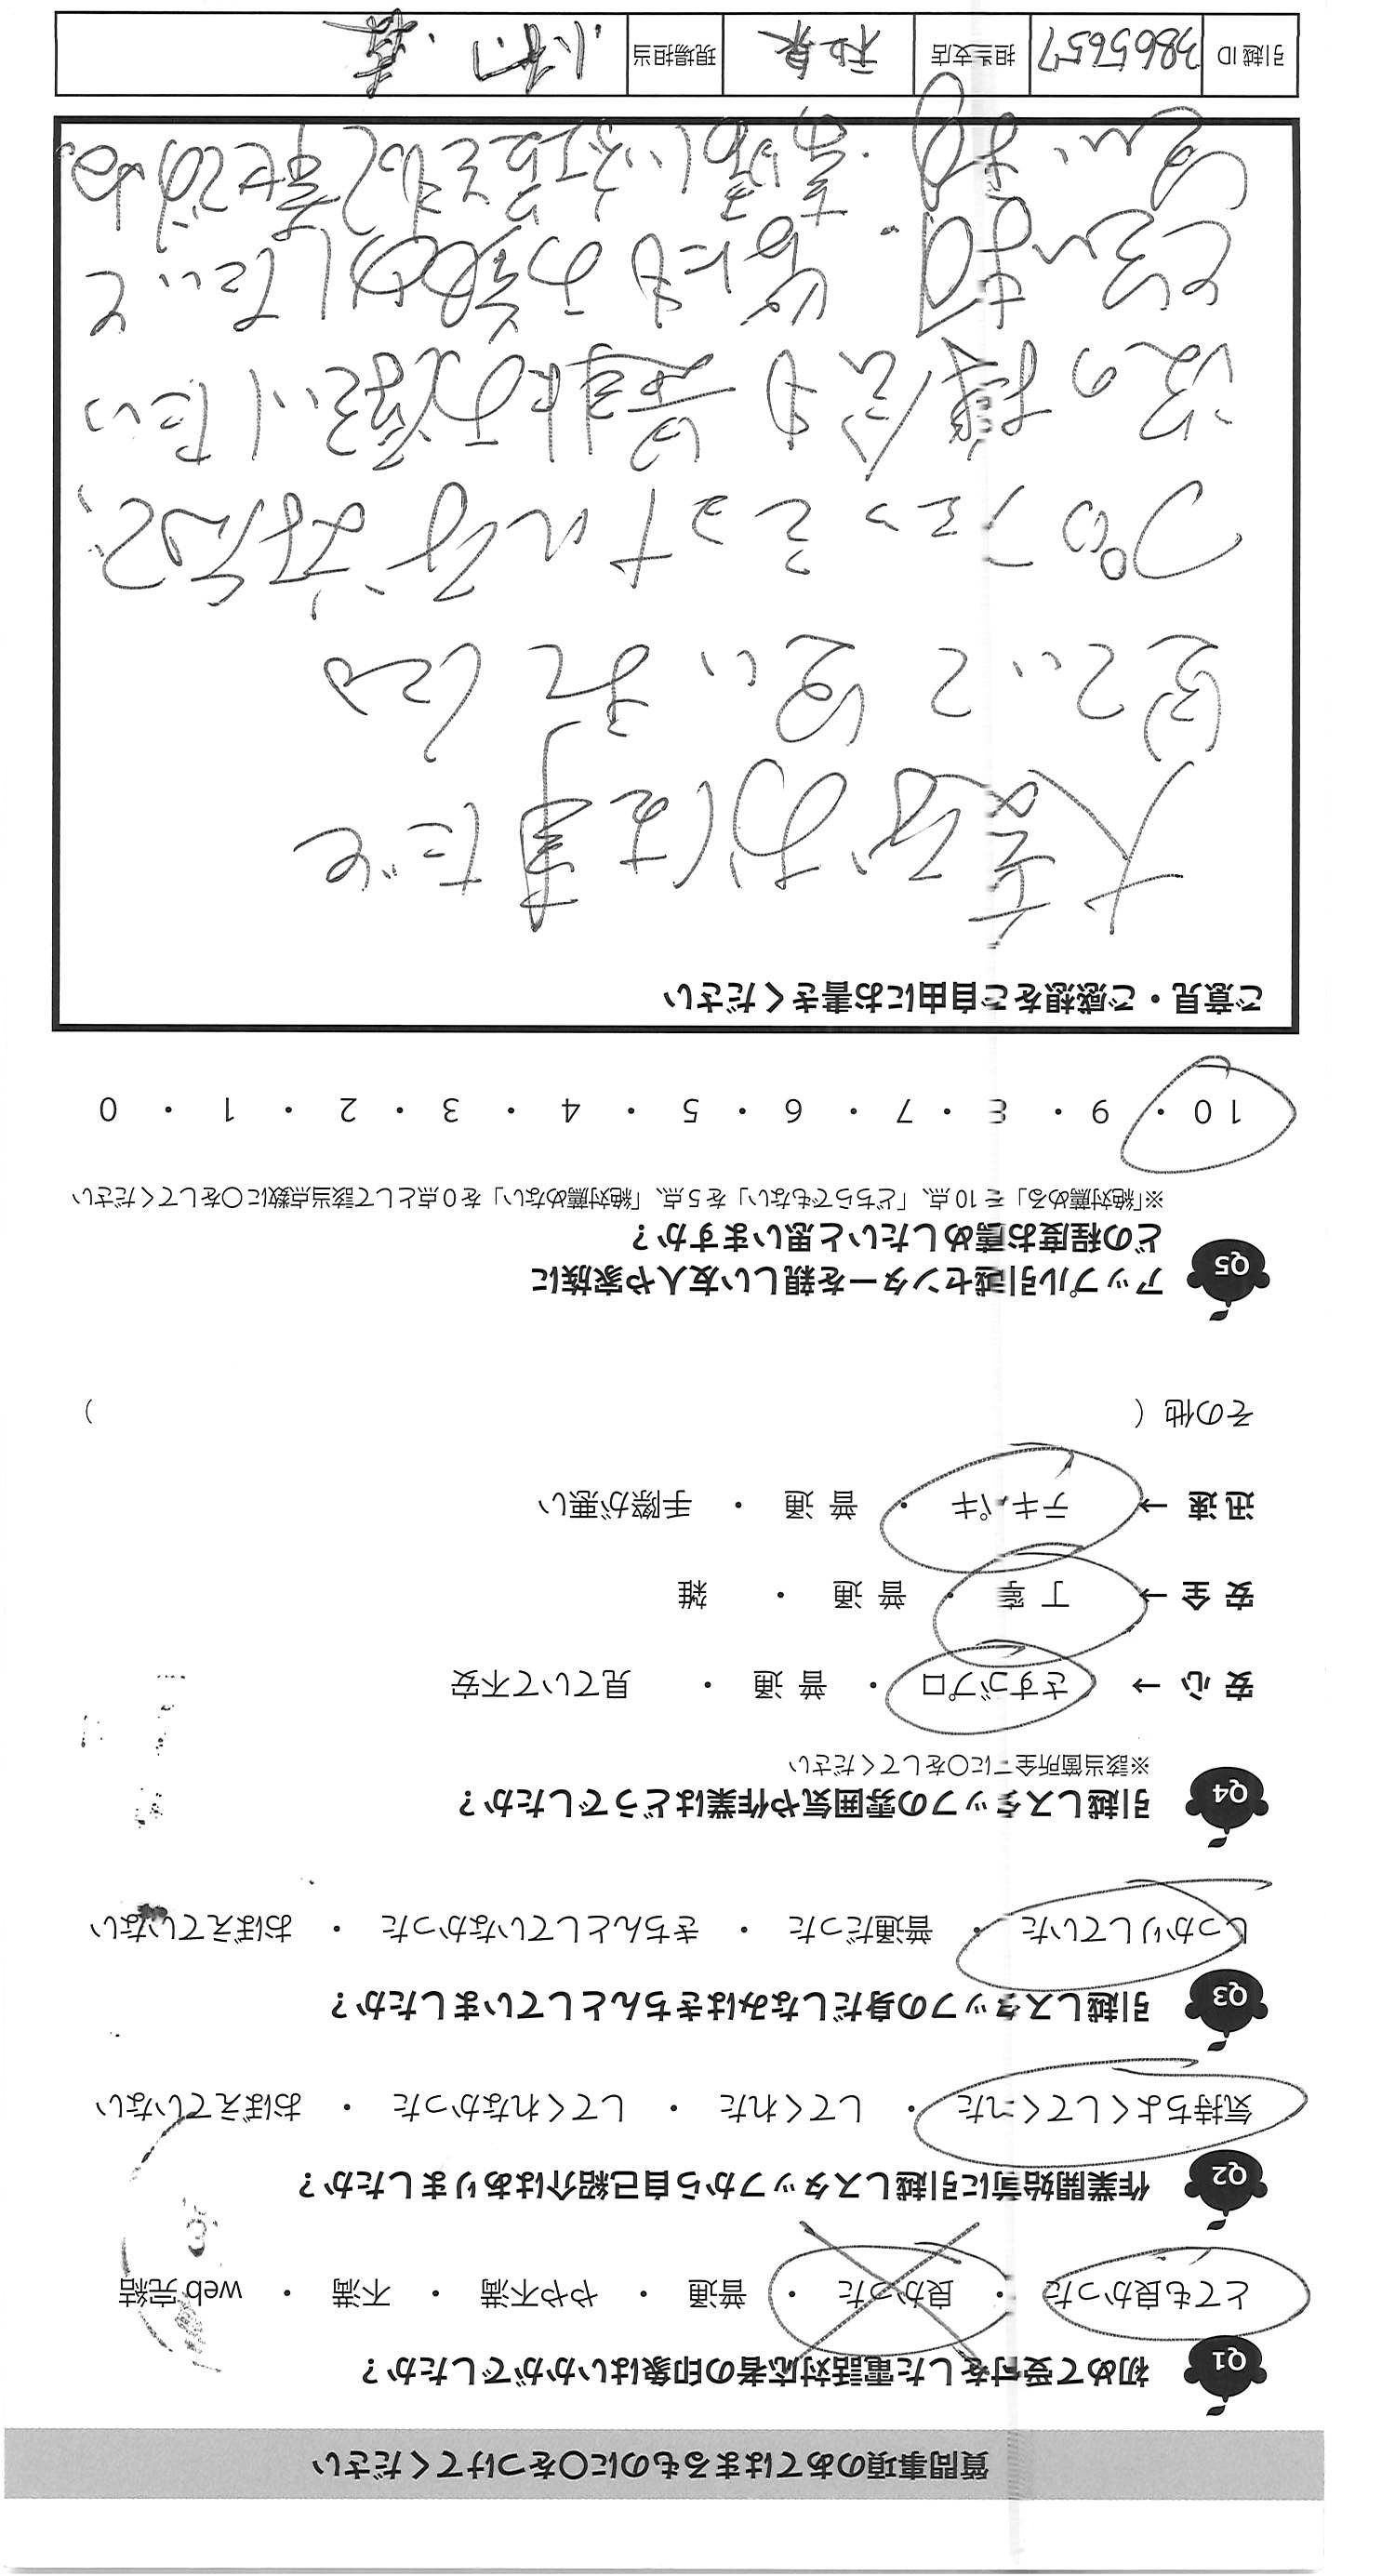 質問事項のあてはまるものに〇をつけてください
Q1 初めて受付をした電話対応者の印象はいかがでしたか？
とても良かった ・ 良かった ・ 普通 ・ やや不満 ・ 不満 ・ web完結
Q2 作業開始前に引越しスタッフから自己紹介はありましたか？
気持ちよくしてくれた ・ してくれた ・ してくれなかった ・ おぼえていない
Q3 引越しスタッフの身だしなみはきちんとしていましたか？
しっかりしていた ・ 普通だった ・ きちんとしていなかった ・ おぼえていない
Q4 引越しスタッフの雰囲気や作業はどうでしたか？
※該当箇所全てに〇をしてください
安心 → さすがプロ ・ 普通 ・ 見ていて不安
安全 → 丁寧 ・ 普通 ・ 雑
迅速 → テキパキ ・ 普通 ・ 手際が悪い
その他（ ）
Q5 アップル引越センターを親しい友人や家族に
どの程度お薦めしたいと思いますか？
※「絶対薦める」を10点、「どちらでもない」を5点、「絶対薦めない」を0点として該当点数に〇をしてください
10 ・ 9 ・ 8 ・ 7 ・ 6 ・ 5 ・ 4 ・ 3 ・ 2 ・ 1 ・ 0
ご意見・ご感想をご自由にお書きください
大変なお仕事だと
見ていて思いました
プロフェッショナルな方々で、
次の機会も是非お願いしたい
と思います。皆にもお薦めしたいと
思います。
引越ID 3865657 担当支店 和泉 現場担当